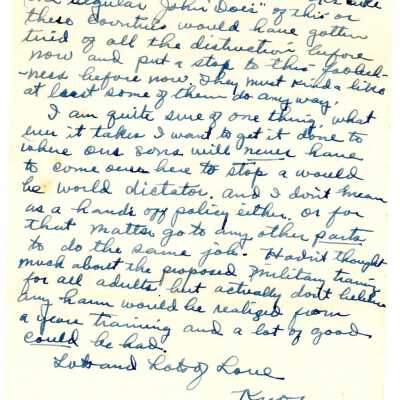 regular "John Doe's" of this or
these countries would have gotten
tired of all the distruction before
now and put a stop to this foolish-
ness before now. They must kinda like
at least some of them do any way.
I am quite sure of one thing, what
ever it takes I want to get it done to
where our sons will never have
to come over here to stop a would
be world dictator. And I don't mean
as a hands off policy either. or for
that matter go to any other parts
to do the same job. Hadn't thought
much about the proposed Military training
for all adults but actually don't believe
any harm would be realized from
a years training and a lot of good
could be had.
Lots and Lots of Love